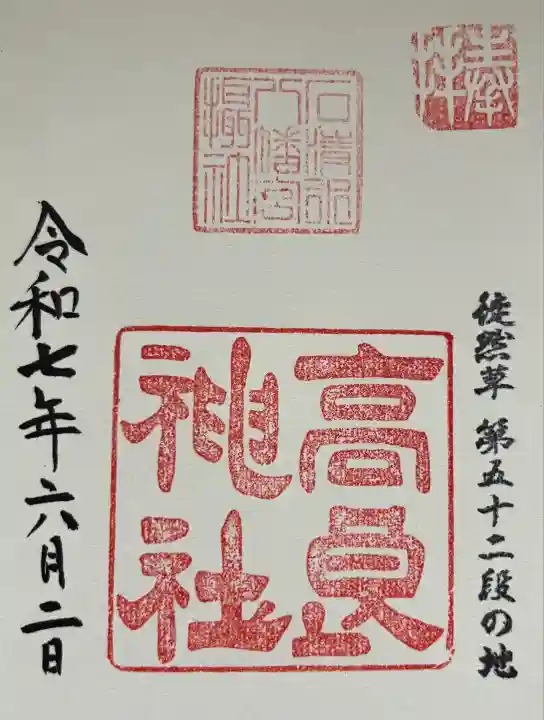 奉拝
徒然草 第五十二段の地
石清水
八幡宮
攝社
高良
神社
令和七年六月二日